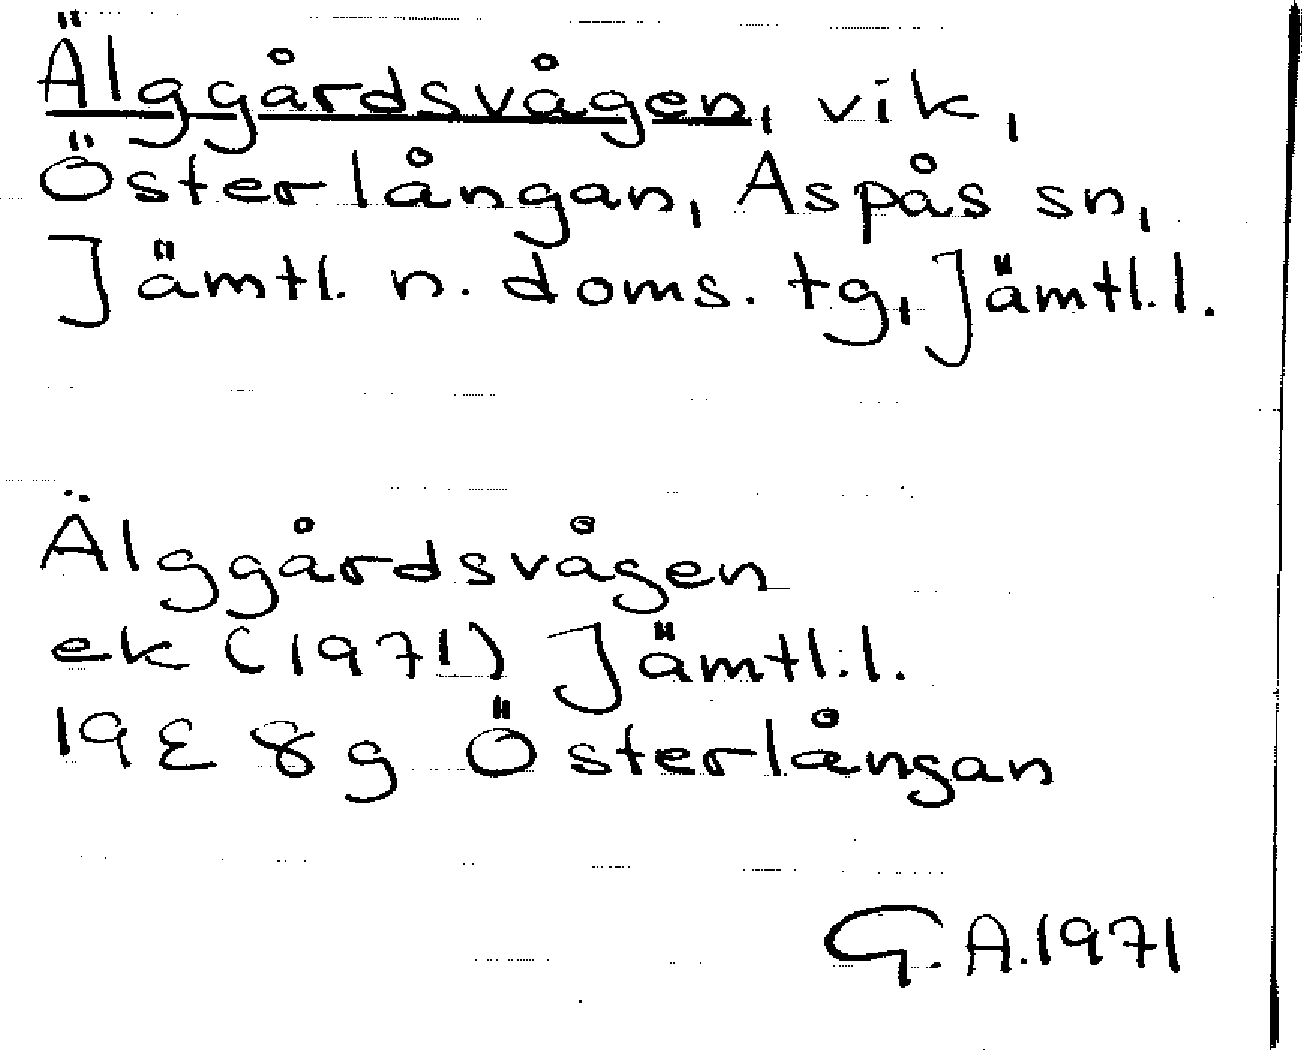 Älggårdsvågen, vik,
Österlångan, Aspås sn,
Jämtl. n. doms. tg, Jämtl. l.
Älggårdsvågen
ek (1971) Jämtl. l.
19E 8g Österlångan
G. A. 1971